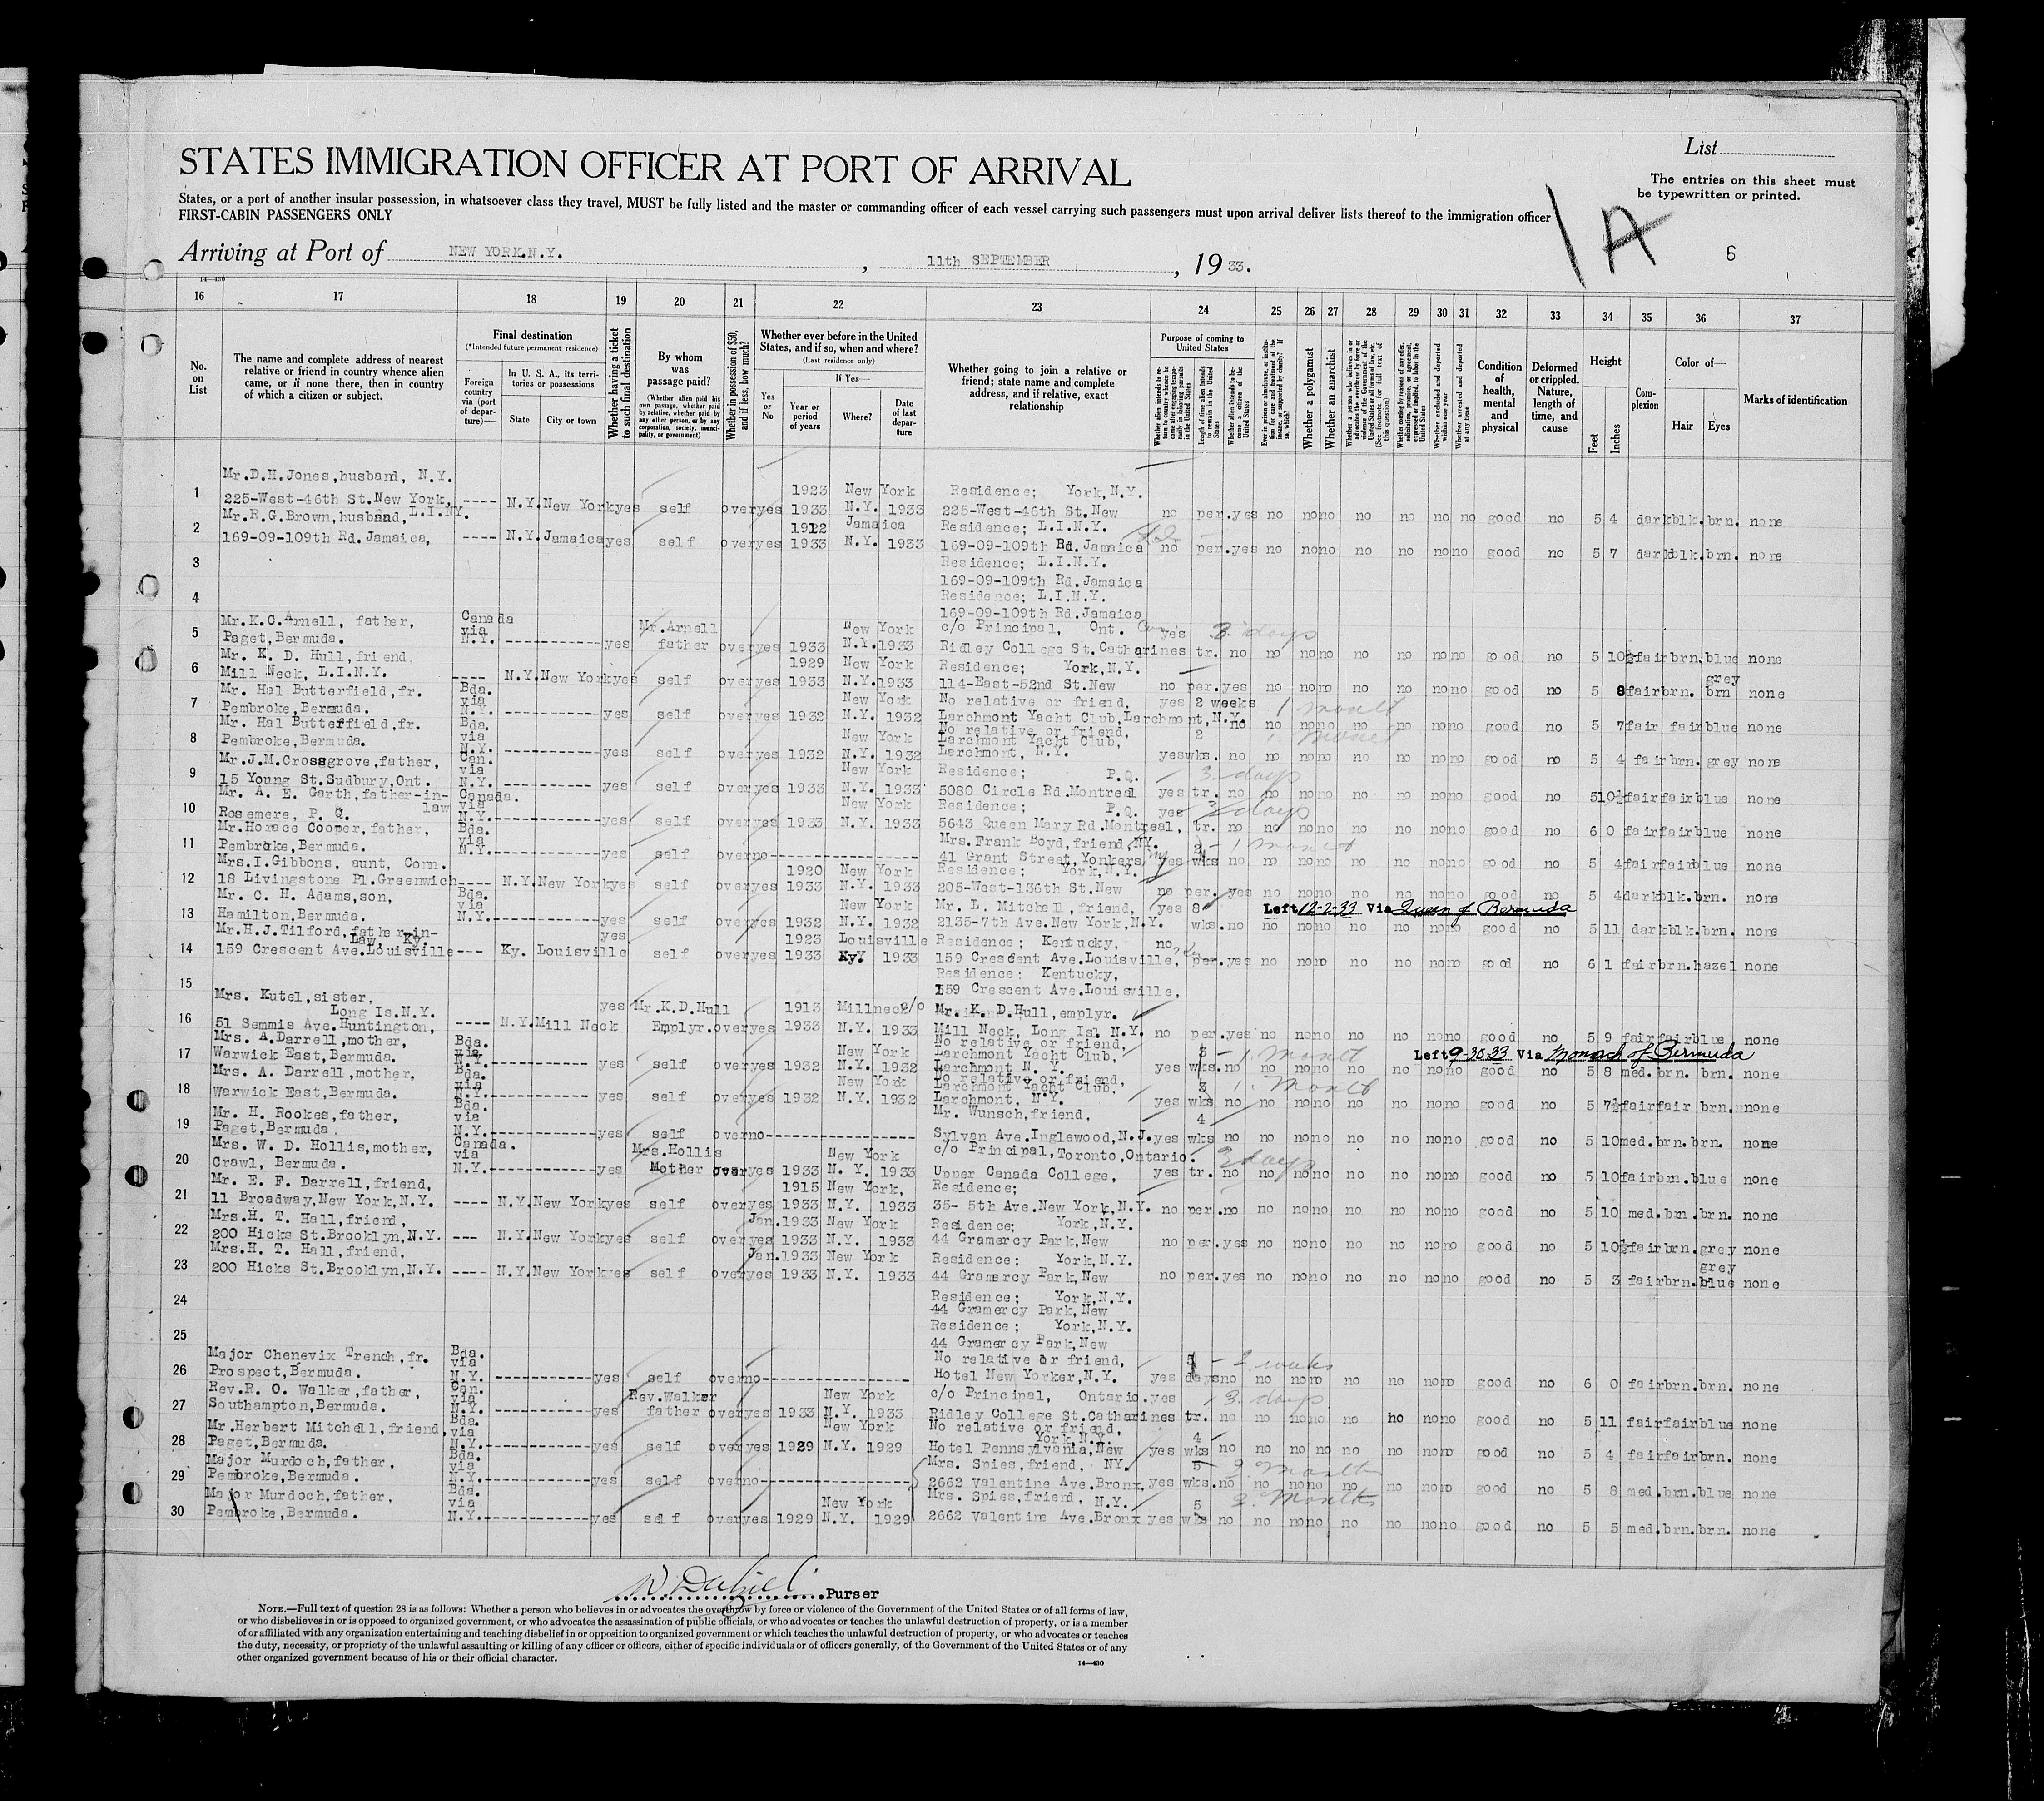 List
STATES IMMIGRATION OFFICER AT PORT OF ARRIVAL
The entries on this sheet must
be typewritten or printed.
States, or a port of another insular possession, in whatsoever class they travel, MUST be fully listed and the master or commanding officer of each vessel carrying such passengers must upon arrival deliver lists thereof to the immigration officer
FIRST-CABIN PASSENGERS ONLY
1A
6
Arriving at Port of NEW YORK.N.Y. , 11th SEPTEMBER , 19 33.
14-430
16 17 18 19 20 21 22 23 24 25 26 27 28 29 30 31 32 33 34 35 36 37
No. on List
The name and complete address of nearest relative or friend in country whence alien came, or if none there, then in country of which a citizen or subject.
Final destination
(*Intended future permanent residence)
Foreign country via (port of departure)—
In U. S. A., its territories or possessions
State City or town
Whether having a ticket to such final destination
By whom was passage paid?
(Whether alien paid his own passage, whether paid by relative, whether paid by any other person, or by any corporation, society, municipality, or government)
Whether in possession of $50, and if less, how much?
Whether ever before in the United States, and if so, when and where?
(Last residence only)
Yes or No
If Yes—
Year or period of years
Where?
Date of last departure
Whether going to join a relative or friend; state name and complete address, and if relative, exact relationship
Purpose of coming to United States
Whether alien intends to return to country whence he came after engaging temporarily in laboring pursuits in the United States
Length of time alien intends to remain in the United States
Whether alien intends to become a citizen of the United States
Ever in prison or almshouse, or institution for care and treatment of the insane, or supported by charity? If so, which?
Whether a polygamist
Whether an anarchist
(See footnote for full text of this question)
Whether coming by reason of any offer, solicitation, promise, or agreement, expressed or implied, to labor in the United States
Whether excluded and deported within one year
Whether arrested and deported at any time
Condition of health, mental and physical
Deformed or crippled. Nature, length of time, and cause
Height
Feet Inches
Complexion
Color of—
Hair Eyes
Marks of identification
Mr.D.H.Jones,husband, N.Y. 1923 New York Residence; York,N.Y.
1 225-West-46th St.New York, ---- N.Y. New York yes self over yes 1933 N.Y. 1933 225-West-46th St.New no per. yes no no no no no no no good no 5 4 dark blk. brn. none
Mr.R.G.Brown,husband,L.I.NY. 1912 Jamaica Residence; L.I.N.Y.
2 169-09-109th Rd.Jamaica, ---- N.Y. Jamaica yes self over yes 1933 N.Y. 1933 169-09-109th Rd.Jamaica no per. yes no no no no no no no good no 5 7 dark blk. brn. none
3 Residence; L.I.N.Y.
169-09-109th Rd.Jamaica
4 Residence; L.I.N.Y.
169-09-109th Rd.Jamaica
Mr.K.C.Arnell, father, Canada via Mr.Arnell New York c/o Principal, Ont. yes 3 days
5 Paget,Bermuda. N.Y. yes father over yes 1933 N.Y. 1933 Ridley College St.Catharines tr. no no no no no no no no good no 5 10½ fair brn. blue none
Mr. K. D. Hull,friend 1929 New York Residence; York,N.Y.
6 Mill Neck, L.I.N.Y. ---- N.Y. New York yes self over yes 1933 N.Y. 1933 114-East-52nd St.New no per. yes no no no no no no no good no 5 8 fair brn. grey brn none
Mr. Hal Butterfield,fr. Bda. via New York No relative or friend, yes 2 weeks 1 month
7 Pembroke,Bermuda. N.Y. yes self over yes 1932 N.Y. 1932 Larchmont Yacht Club,Larchmont,N.Y. no no no no no no no no good no 5 7 fair fair blue none
Mr. Hal Butterfield,fr. Bda. via New York No relative or friend, 2 1. Month
8 Pembroke,Bermuda. N.Y. yes self over yes 1932 N.Y. 1932 Larchmont Yacht Club, Larchmont, N.Y. yes wks. no no no no no no no no good no 5 4 fair brn. grey none
Mr.J.M.Crossgrove,father, Can. via New York Residence; P.Q. 3 days
9 15 Young St.Sudbury,Ont. N.Y. yes self over yes 1933 N.Y. 1933 5080 Circle Rd.Montreal yes tr. no no no no no no no no good no 5 10½ fair fair blue none
Mr. A. E. Garth,father-in-law Canada. via New York Residence; P.Q. yes 3 days
10 Rosemere, P. Q. N.Y. yes self over yes 1933 N.Y. 1933 5643 Queen Mary Rd.Montreal, tr. no no no no no no no no good no 6 0 fair fair blue none
Mr.Horace Cooper,father, Bda. via Mrs.Frank Boyd,friend,NY. 2 - 1 month
11 Pembroke,Bermuda. N.Y. yes self over no 41 Grant Street,Yonkers yes wks no no no no no no no no good no 5 4 fair fair blue none
Mrs.I.Gibbons, aunt, Conn. 1920 New York Residence; York,N.Y.
12 18 Livingstone Pl.Greenwich ---- N.Y. New York yes self over yes 1933 N.Y. 1933 205-West-136th St.New no per. yes no no no no no no no good no 5 4 dark blk. brn. none
Mr. C. H. Adams,son, Bda. via New York Mr. L. Mitchell,friend, yes 8 Left 12-2-33 Via Queen of Bermuda
13 Hamilton,Bermuda. N.Y. yes self over yes 1932 N.Y. 1932 2135-7th Ave.New York,N.Y. wks. no no no no no no no no good no 5 11 dark blk. brn. none
Mr.H.J.Tilford,father-in-Law, Ky. yes 1923 Louisville Residence; Kentucky, no
14 159 Crescent Ave.Louisville --- Ky. Louisville self over yes 1933 Ky 1933 159 Crescent Ave.Louisville, per. yes no no no no no no no good no 6 1 fair brn. hazel none
15 Residence; Kentucky,
159 Crescent Ave.Louisville,
Mrs. Kutel,sister, Long Is.N.Y. yes Mr.K.D.Hull 1913 Millneck c/o Mr. K. D.Hull,emplyr.
16 51 Semmis Ave.Huntington, ---- N.Y. Mill Neck Emplyr. over yes 1933 N.Y. 1933 Mill Neck, Long Isl N.Y. no per. yes no no no no no no no good no 5 9 fair fair blue none
Mrs. A.Darrell,mother, Bda. via New York No relative or friend, Larchmont Yacht Club, 3 - 1 month Left 9-30-33 Via Monarch of Bermuda
17 Warwick East,Bermuda. N.Y. yes self over yes 1932 N.Y. 1932 Larchmont N. Y. yes wks. no no no no no no no no good no 5 8 med. brn. brn. none
Mrs. A. Darrell,mother, Bda. via New York No relative or friend, Larchmont Yacht Club, 3 1. Month
18 Warwick East,Bermuda. N.Y. yes self over yes 1932 N.Y. 1932 Larchmont, N.Y. yes wks no no no no no no no no good no 5 7½ fair fair brn. none
Mr. H. Rookes,father, Bda. via Mr. Wunsch,friend, 4
19 Paget,Bermuda. N.Y. yes self over no Sylvan Ave.Inglewood,N.J. yes wks no no no no no no no no good no 5 10 med. brn. brn. none
Mrs. W. D. Hollis,mother, Canada. via Mrs.Hollis New York c/o Principal,Toronto,Ontario. 3 days
20 Crawl, Bermuda. N.Y. yes Mother over yes 1933 N. Y. 1933 Upper Canada College, yes tr. no no no no no no no no good no 5 10 fair brn. blue none
Mr. E. F. Darrell,friend, 1915 New York, Residence;
21 11 Broadway,New York,N.Y. ---- N.Y. New York yes self over yes 1933 N.Y. 1933 35- 5th Ave.New York,N.Y. no per. no no no no no no no no good no 5 10 med. brn. brn. none
Mrs.H. T. Hall,friend, Jan.1933 New York Residence; York,N.Y.
22 200 Hicks St.Brooklyn,N.Y. --- N.Y. New York yes self over yes 1933 N.Y. 1933 44 Gramercy Park,New no per. yes no no no no no no no good no 5 10½ fair brn. grey none
Mrs.H. T. Hall,friend, Jan.1933 New York Residence; York,N.Y.
23 200 Hicks St.Brooklyn,N.Y. ---- N.Y. New York yes self over yes 1933 N.Y. 1933 44 Gramercy Park,New no per. yes no no no no no no no good no 5 3 fair brn. grey blue none
24 Residence; York,N.Y.
44 Gramercy Park,New
25 Residence; York,N.Y.
44 Gramercy Park,New
Major Chenevix Trench,fr. Bda. via No relative or friend, 5 - 2 weeks
26 Prospect,Bermuda. N.Y. yes self over no Hotel New Yorker,N.Y. yes days no no no no no no no no good no 6 0 fair brn. brn. none
Rev.R. O. Walker,father, Can. via Rev.Walker New York c/o Principal, Ontario. yes 3 days
27 Southampton,Bermuda. N.Y. yes father over yes 1933 N.Y. 1933 Ridley College St.Catharines tr. no no no no no no no no good no 5 11 fair fair blue none
Mr.Herbert Mitchell,friend, Bda. via New York No relative or friend, York,N.Y. 4
28 Paget,Bermuda. N.Y. yes self over yes 1929 N.Y. 1929 Hotel Pennsylvania,New yes wks no no no no no no no no good no 5 4 fair fair brn. none
Major Murdoch,father, Bda. via Mrs. Spies,friend, NY. 5 2 Months
29 Pembroke,Bermuda. N.Y. yes self over no 2662 Valentine Ave.Bronx, yes wks. no no no no no no no no good no 5 8 med. brn. blue none
Major Murdoch,father, Bda. via New York Mrs. Spies,friend, N.Y. 5 2. Months
30 Pembroke,Bermuda. N.Y. yes self over yes 1929 N.Y. 1929 2662 Valentine Ave.Bronx yes wks no no no no no no no no good no 5 5 med. brn. brn. none
Purser
NOTE.—Full text of question 28 is as follows: Whether a person who believes in or advocates the overthrow by force or violence of the Government of the United States or of all forms of law,
or who disbelieves in or is opposed to organized government, or who advocates the assassination of public officials, or who advocates or teaches the unlawful destruction of property, or is a member
of or affiliated with any organization entertaining and teaching disbelief in or opposition to organized government or which teaches the unlawful destruction of property, or who advocates or teaches
the duty, necessity, or propriety of the unlawful assaulting or killing of any officer or officers, either of specific individuals or of officers generally, of the Government of the United States or of any
other organized government because of his or their official character.
14—430